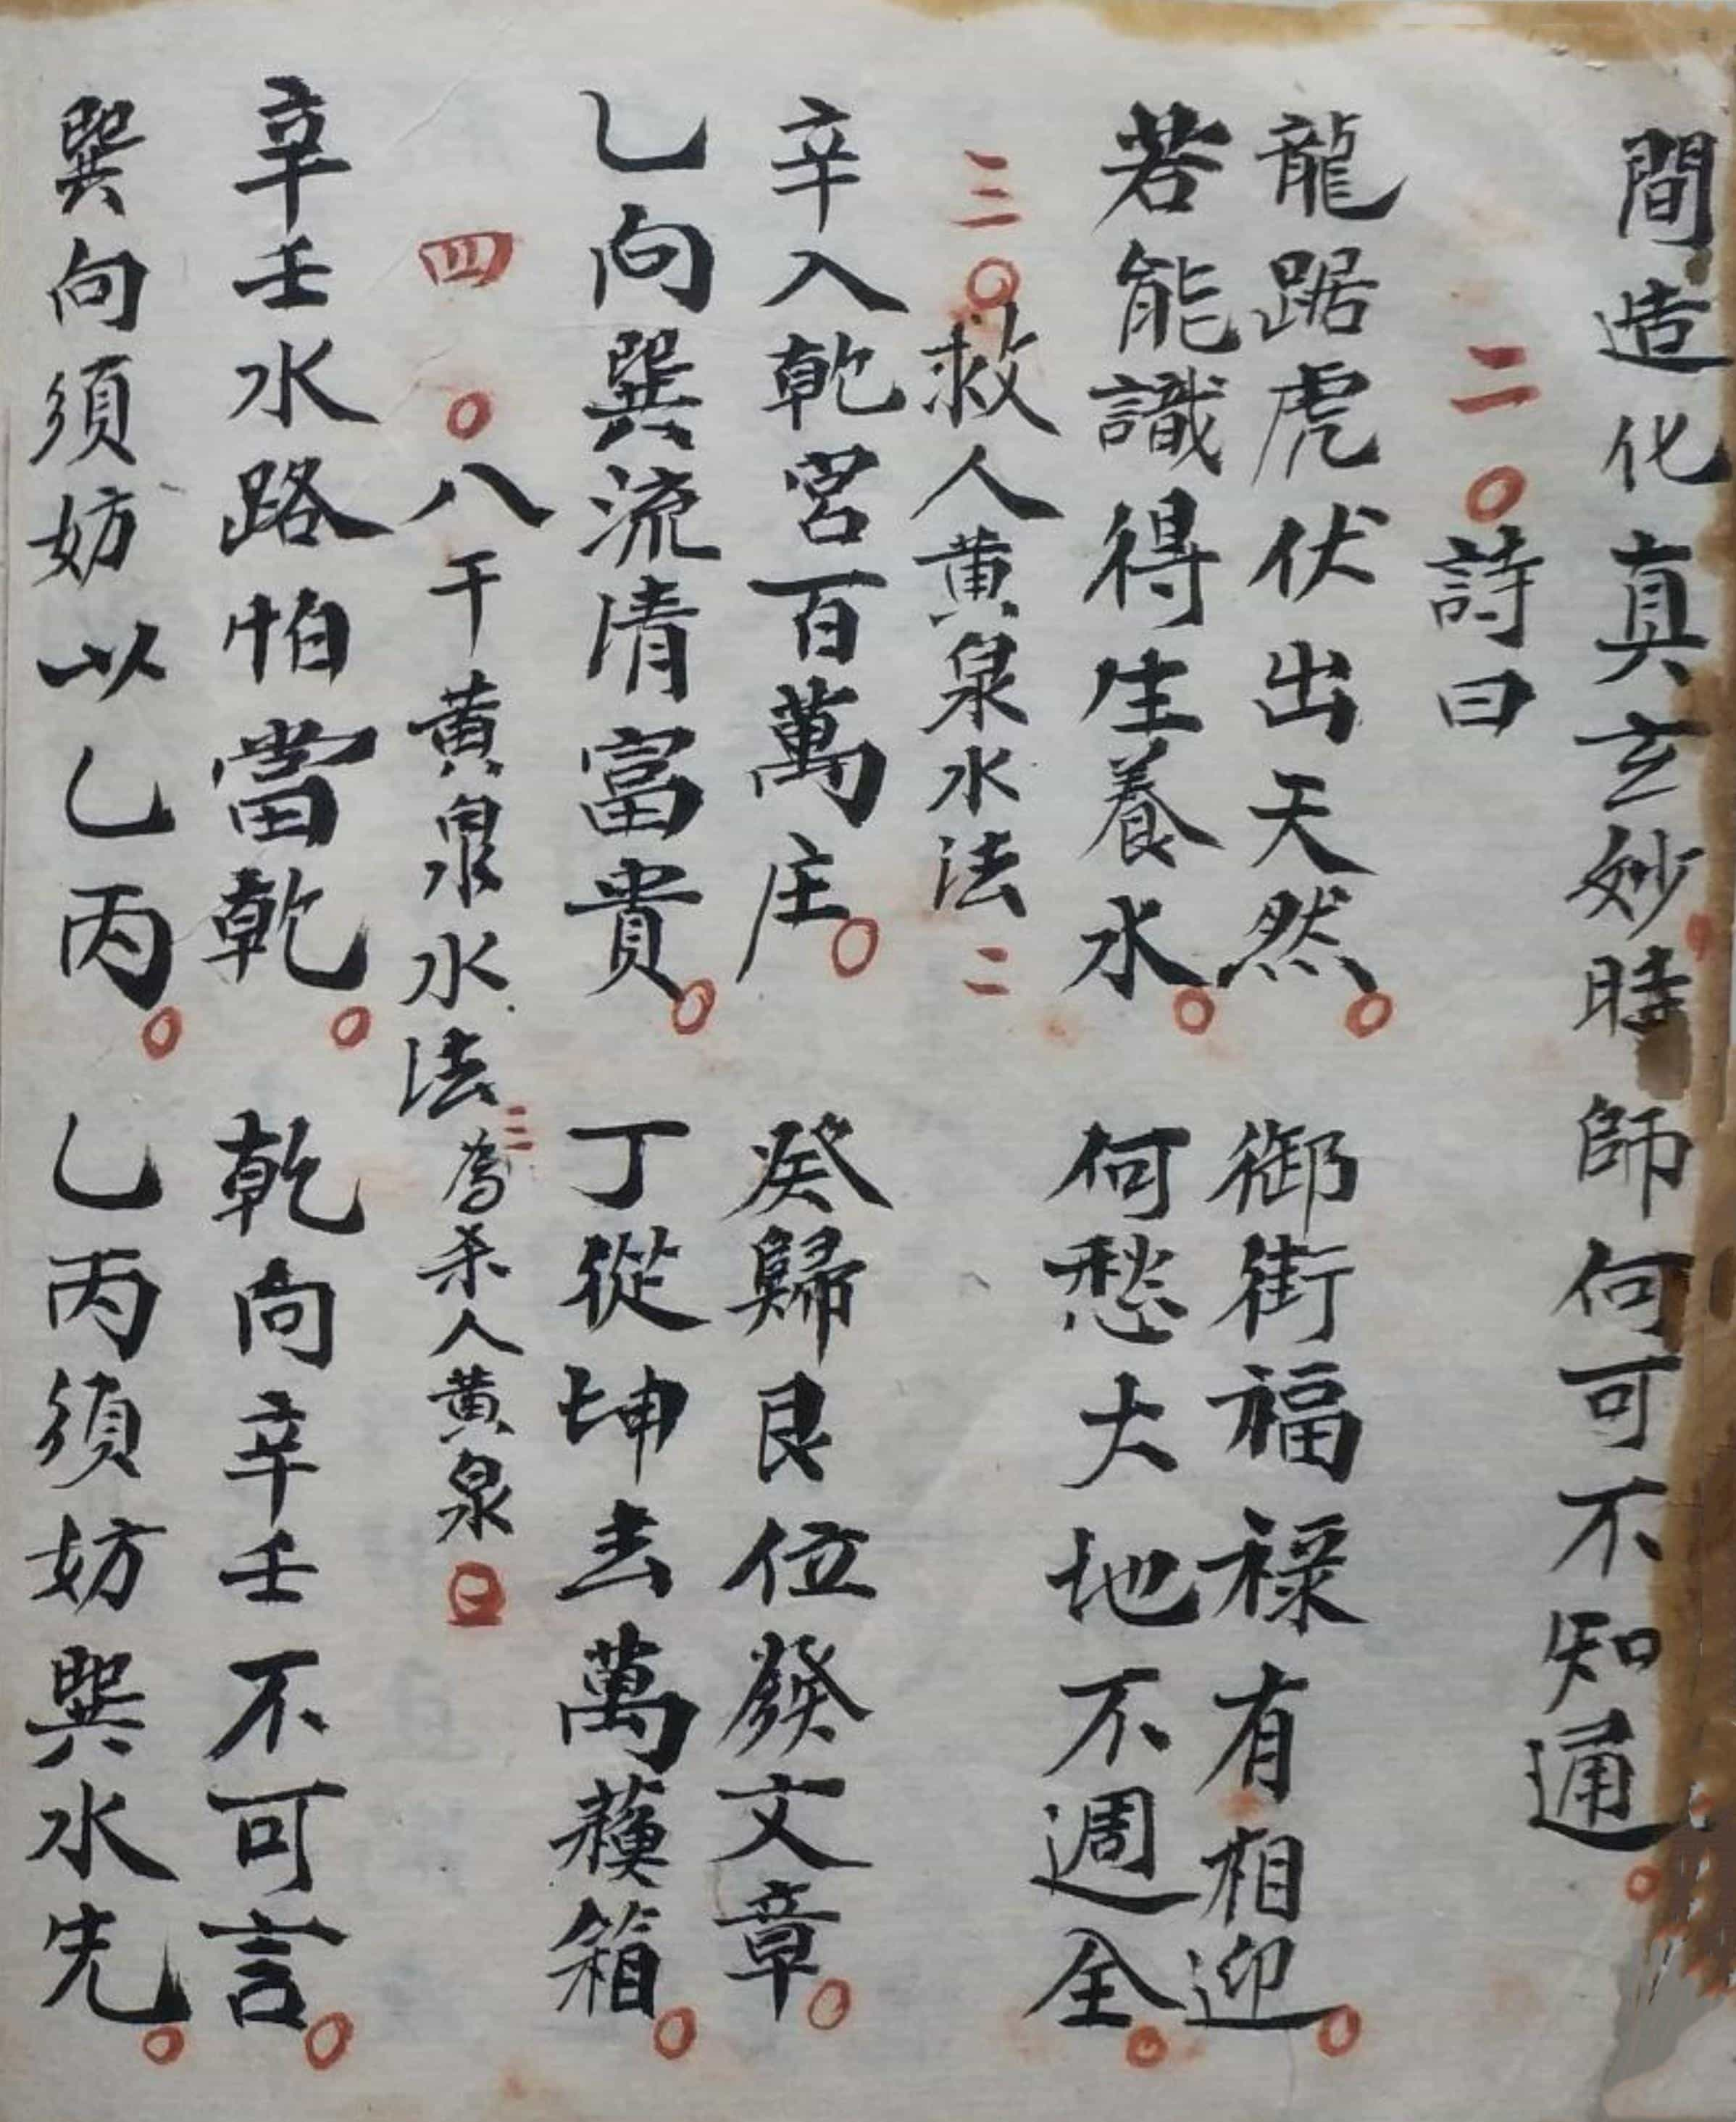 間造化真玄妙時師何可不知通
二〇詩曰
龍踞虎伏出天然 御街福祿有相迎
若能識得生養水 何愁大地不週全
三〇救人黄泉水法二
辛入乾宮百萬庄 癸歸艮位發文章
乙向巽流清富貴 丁從坤去萬箱
四〇八干黄泉水法三為杀人黄泉
辛壬水路怕當乾 乾向辛壬不可言
巽向須妨以乙丙 乙丙須妨巽水先